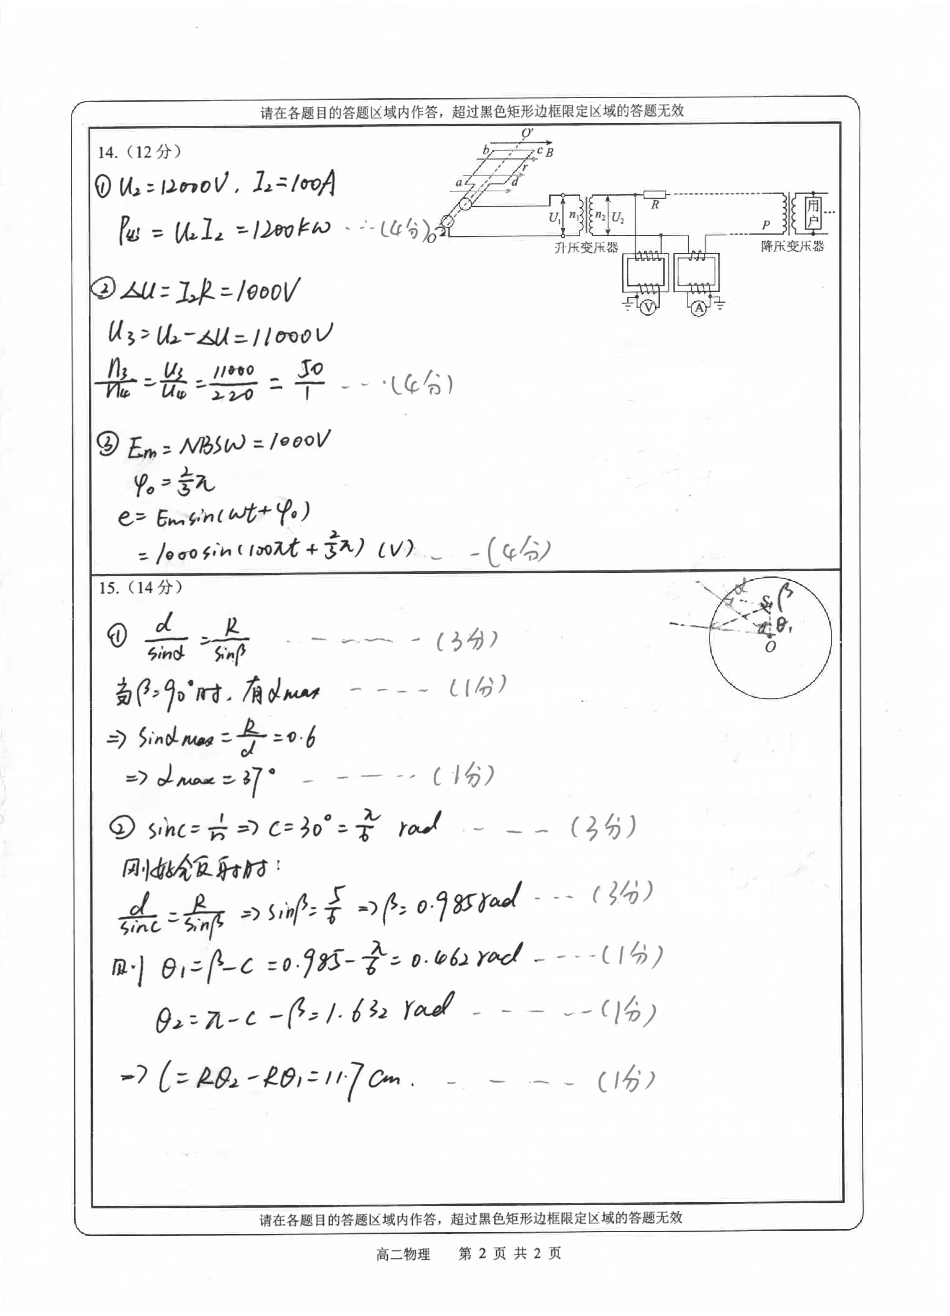 请在各题目的答题区域内作答，超过黑色矩形边框限定区域的答题无效
14.（12分）
① U₂=12000V，I₂=100A
P出 = U₂I₂ = 1200kW ----(4分)
O'
b
c B
r
a
d
O
U₁ n₁ n₂ U₂
R
P
用户
升压变压器
降压变压器
V
A
② ΔU=I₂R=1000V
U₃=U₂-ΔU=11000V
n₃/n₄ = U₃/U₄ = 11000/220 = 50/1 ----(4分)
③ Em=NBSω=1000V
φ₀=2/3π
e=Emsin(ωt+φ₀)
=1000sin(100πt+2/3π) (V) ---(4分)
15.（14分）
① d/sinα = R/sinβ ------(3分)
当β=90°时，有αmax ----(1分)
⇒ sinαmax = R/d = 0.6
⇒ αmax=37° -----(1分)
α
S
β
α θ₁
O
② sinC=1/n ⇒ C=30°=π/6 rad ----(3分)
刚好全反射时：
d/sinC = R/sinβ ⇒ sinβ=5/6 ⇒ β=0.985rad ----(3分)
则 θ₁=β-C=0.985-π/6=0.462rad ----(1分)
θ₂=π-C-β=1.632 rad -----(1分)
⇒ l=Rθ₂-Rθ₁=11.7cm. ----(1分)
请在各题目的答题区域内作答，超过黑色矩形边框限定区域的答题无效
高二物理 第 2 页 共 2 页